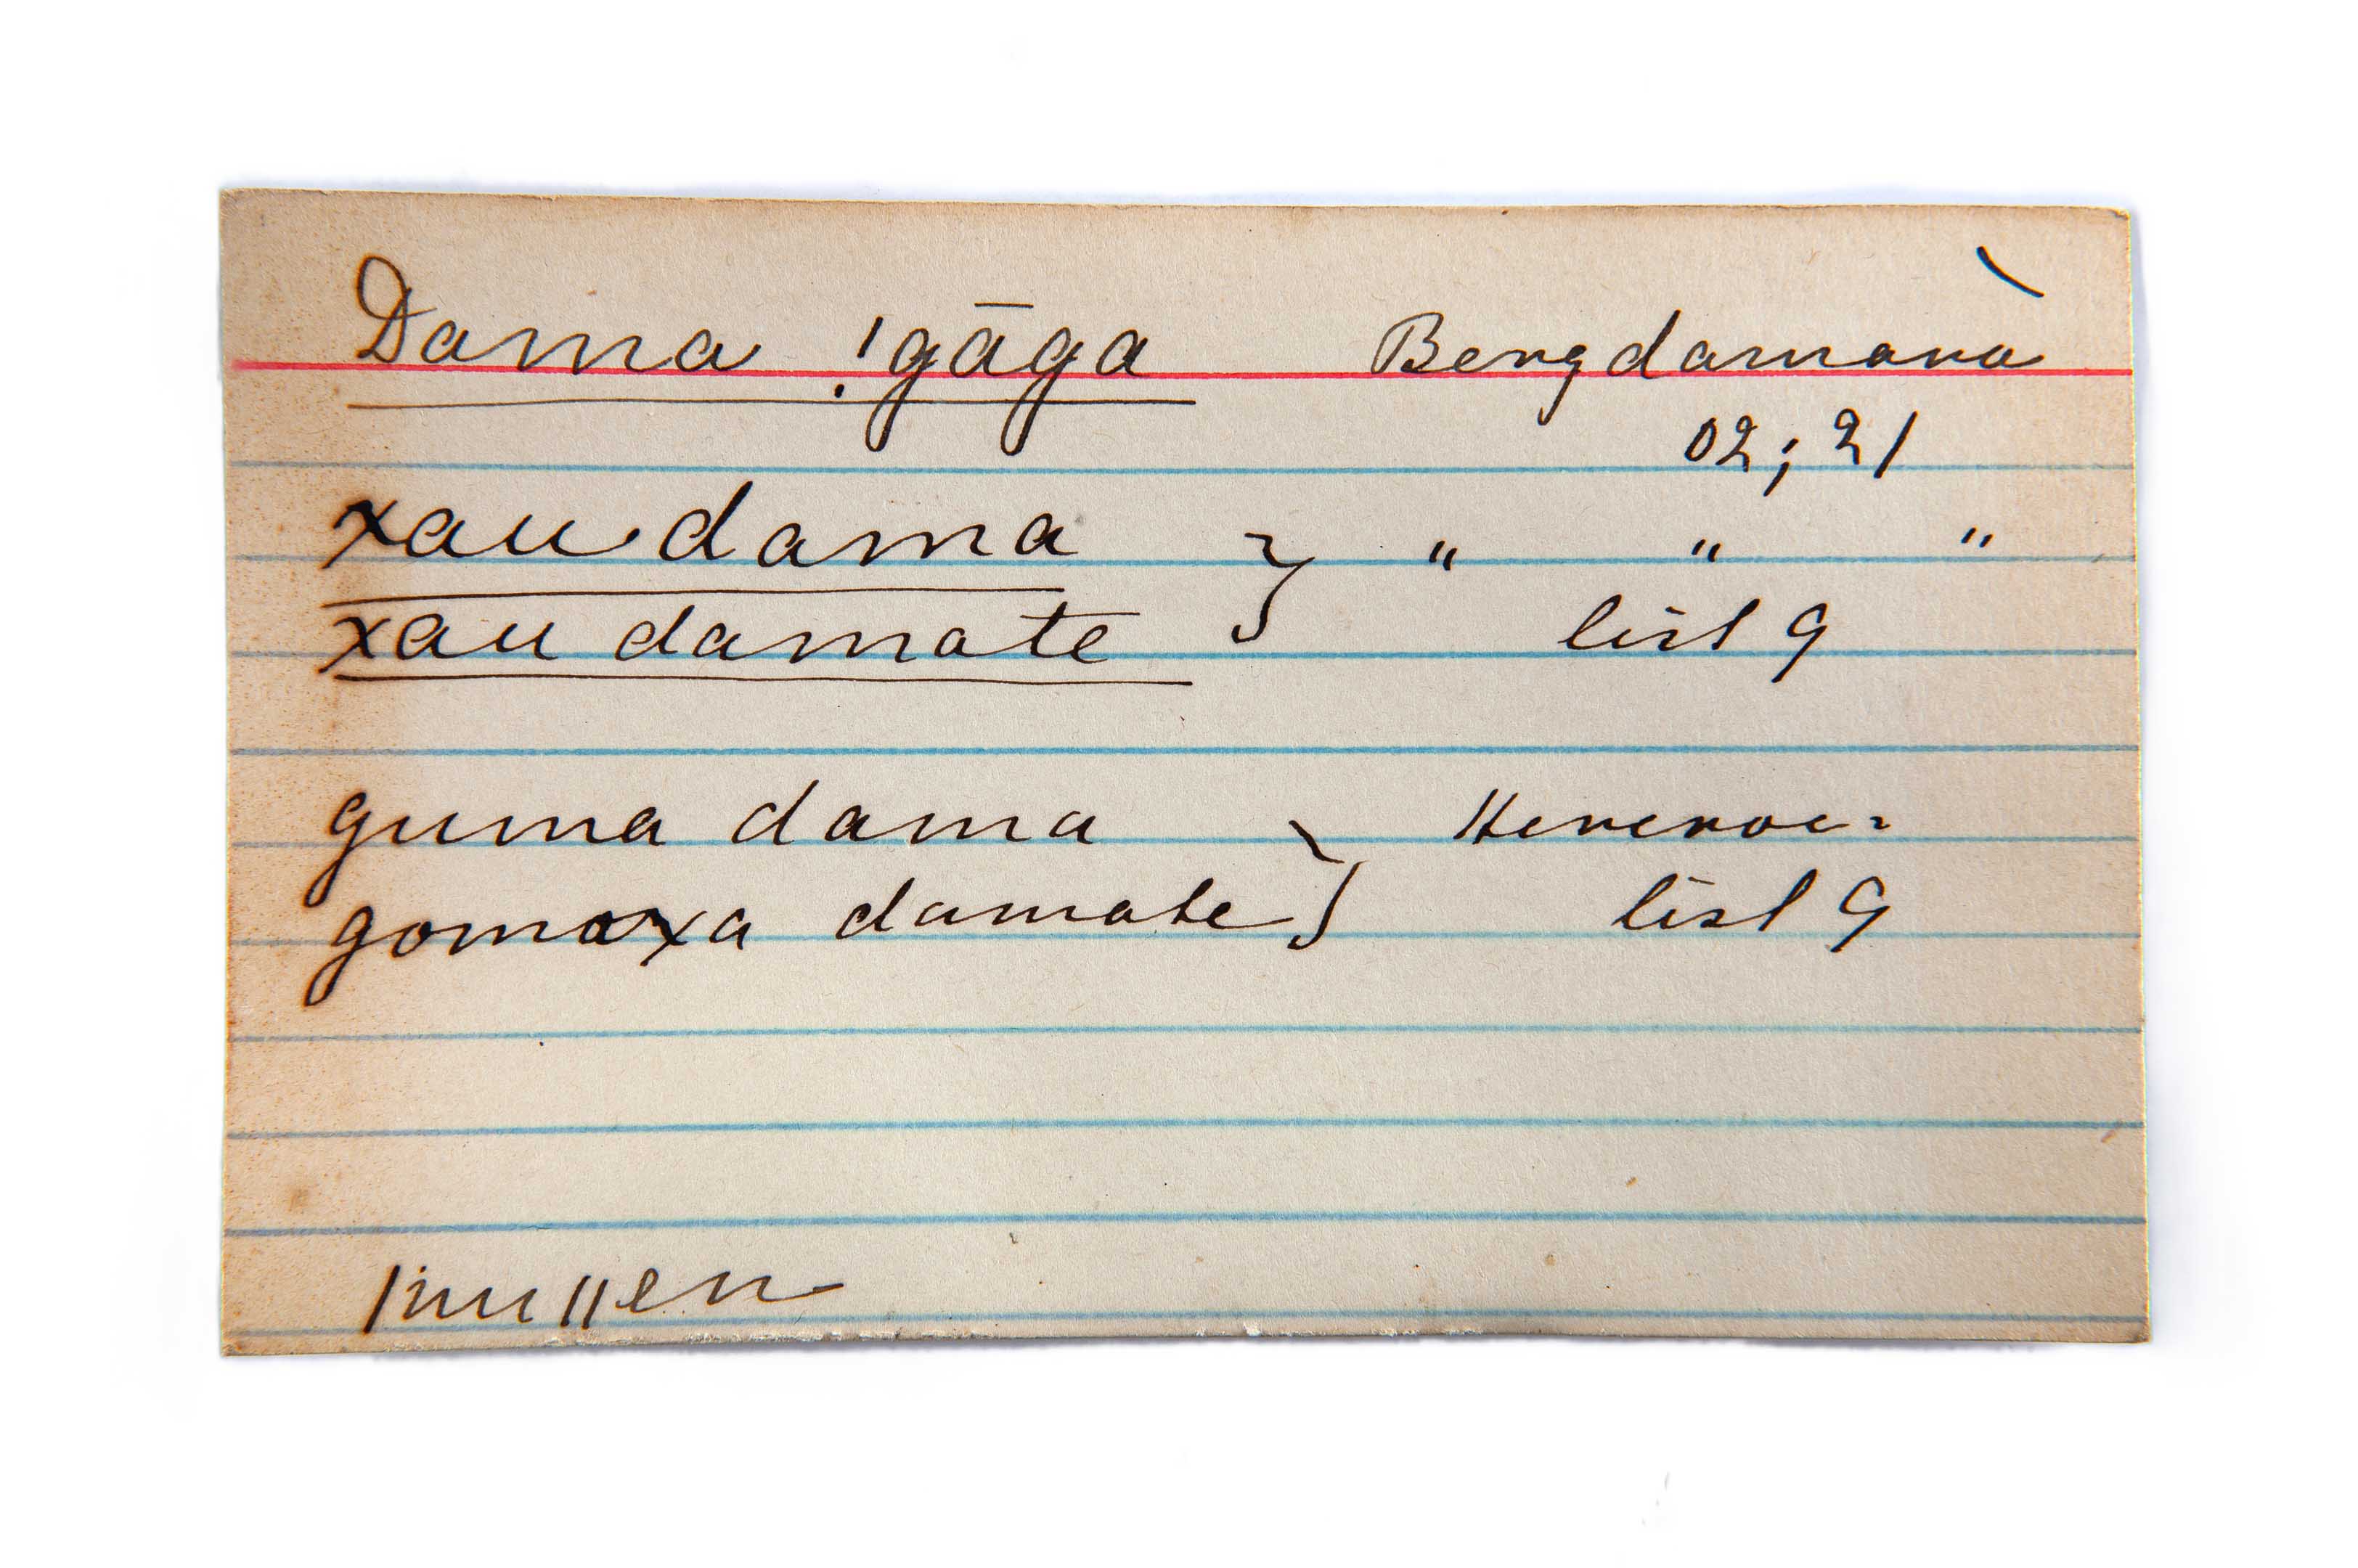 Dama !gāga Bergdamara
02; 21
xau dama } " " "
xau damate list 9
guma dama } Hereroe.
gomaxa damate list 9